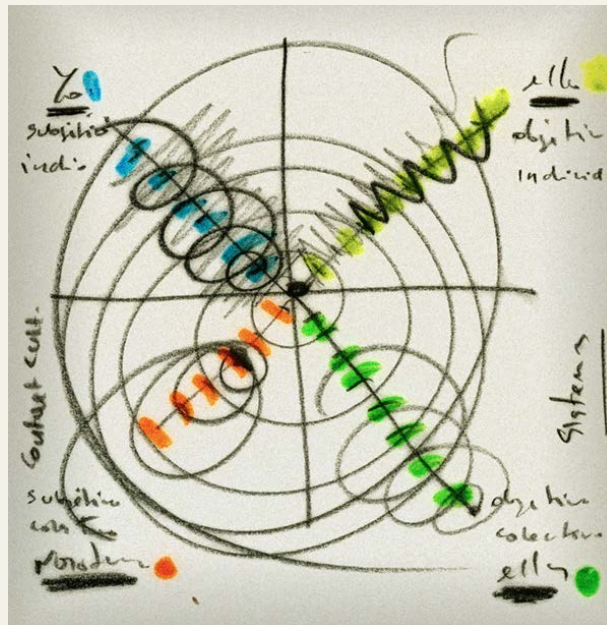 Yo
subjetivo
indiv.
ello
objetivo
individ
Context Cult.
Sistemas
subjetivo
nosotros
objetivo
colectivo
ellos